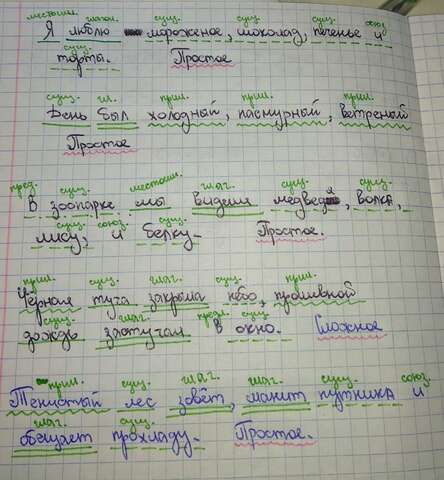 местоим. глаг. сущ. сущ. сущ. союз
Я люблю мороженое, шоколад, печенье и
сущ.
торты. Простое
сущ. гл. прил. прил. прил.
День был холодный, пасмурный, ветреный
Простое
пред. сущ. местоим. глаг. сущ. сущ.
В зоопарке мы видели медведя, волка,
сущ. союз. сущ.
лису, и белку. Простое.
прил. сущ. глаг. сущ. прил.
Чёрная туча закрыла небо, проливной
сущ. глаг. предл. сущ.
дождь застучал в окно. Сложное
прил. сущ. глаг. глаг. сущ. союз.
Тенистый лес зовёт, манит путника и
глаг. сущ.
обещает прохладу. Простое.